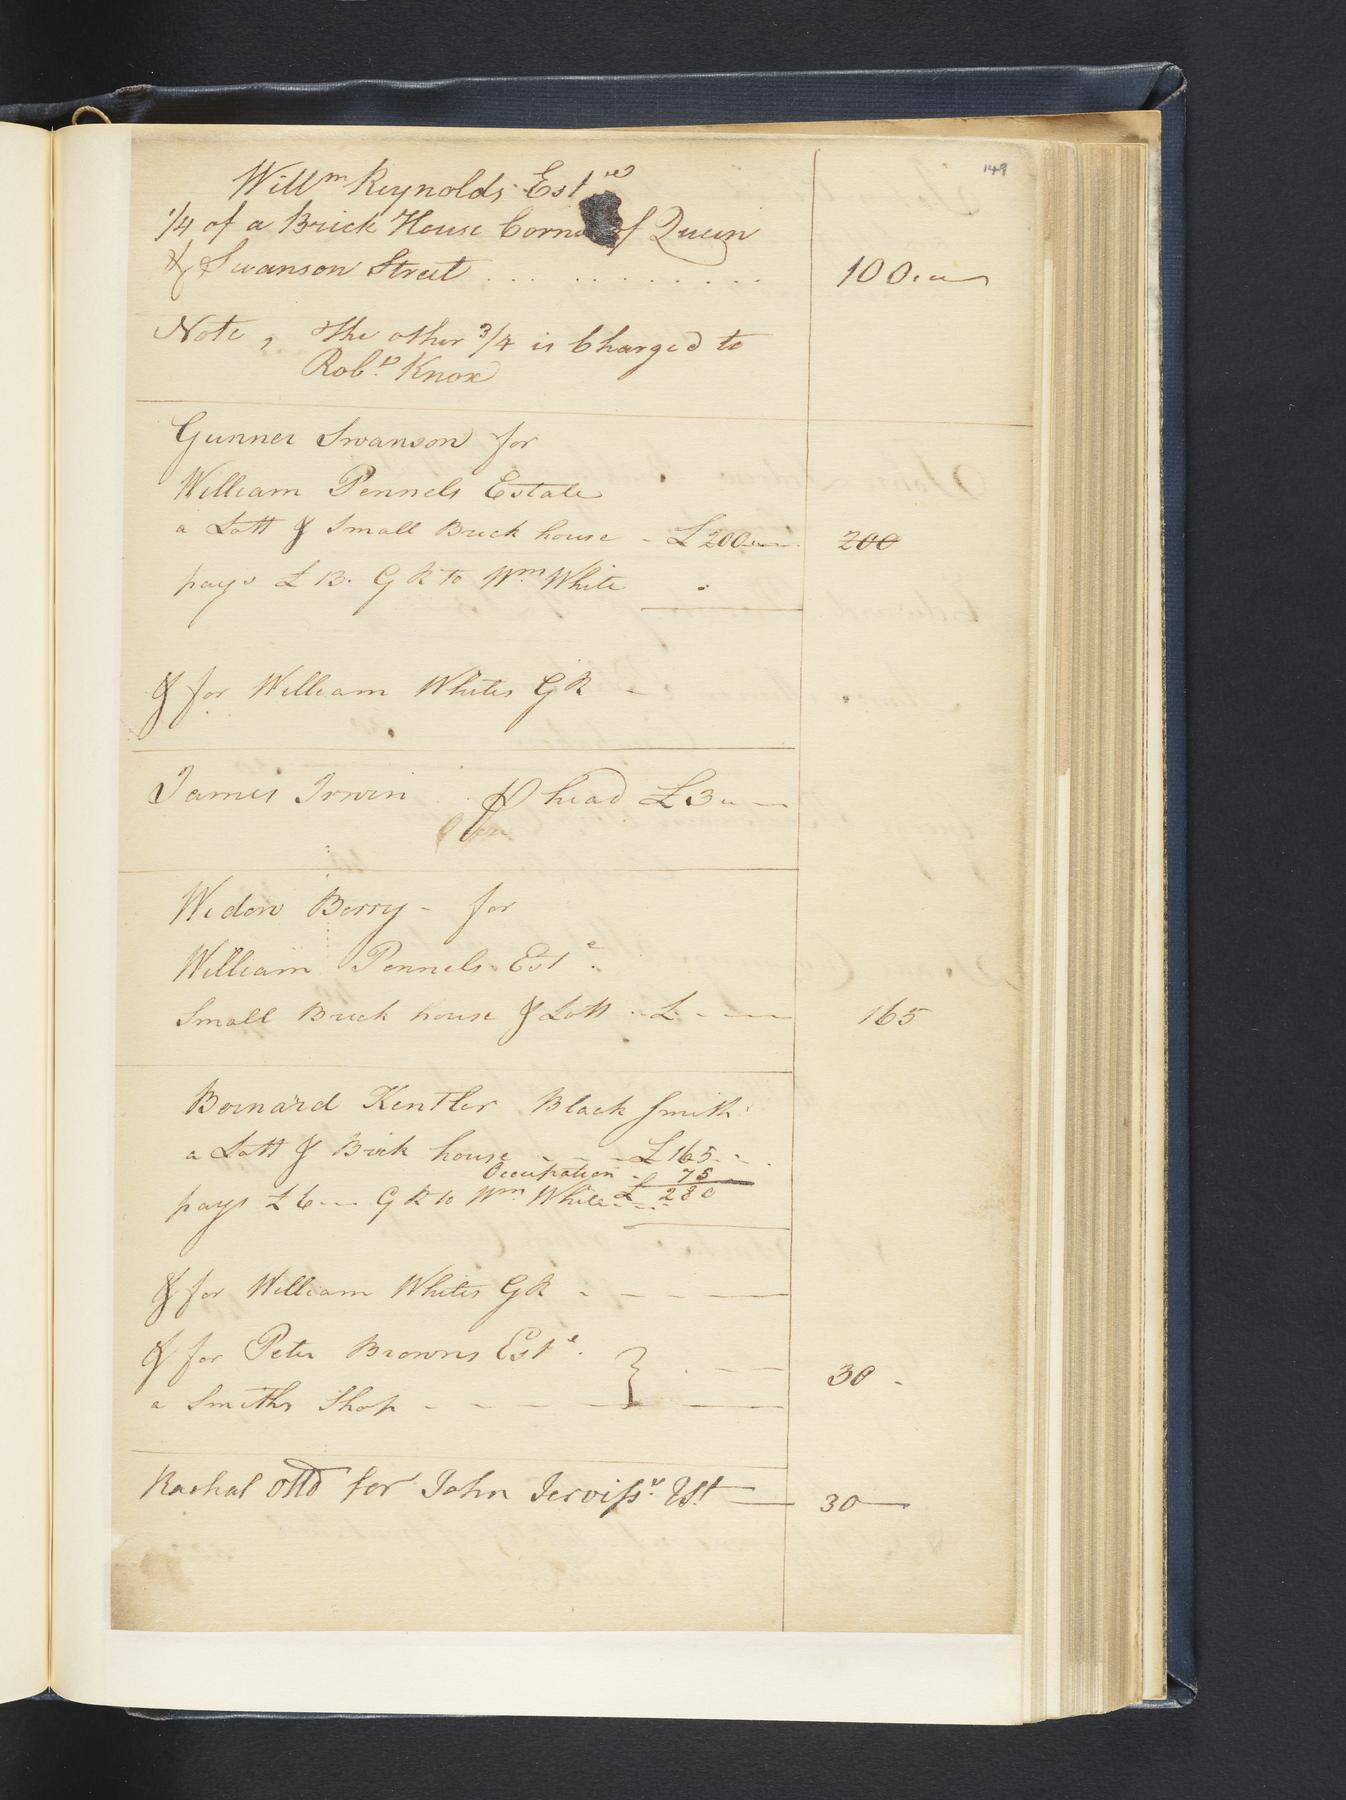 149
Willm Reynolds Este
1/4 of a Brick House Corner of Queen
& Swanson Street . . . . . . . . . . 100..
Note, The other 3/4 is Charged to
Robt Knox
Gunner Swanson for
William Pennels Estate
a Lott & Small Brick house - £200 200
pays £13. G R to Wm White
& for William Whites G R -
James Irwin
head £3
Widow Berry - for
William Pennels Este.
Small Brick house & Lott - £ - - - 165
Bernard Kentler Black Smith
a Lott & Brick house - - - £165 - -
Occupation - 75
pays £6 G R to Wm White £ 280
& for William Whites G R - - - -
& for Peter Browns Este.
a Smiths Shop - - - - } 30 -
Rachal Otto for John Jerviss Est 30